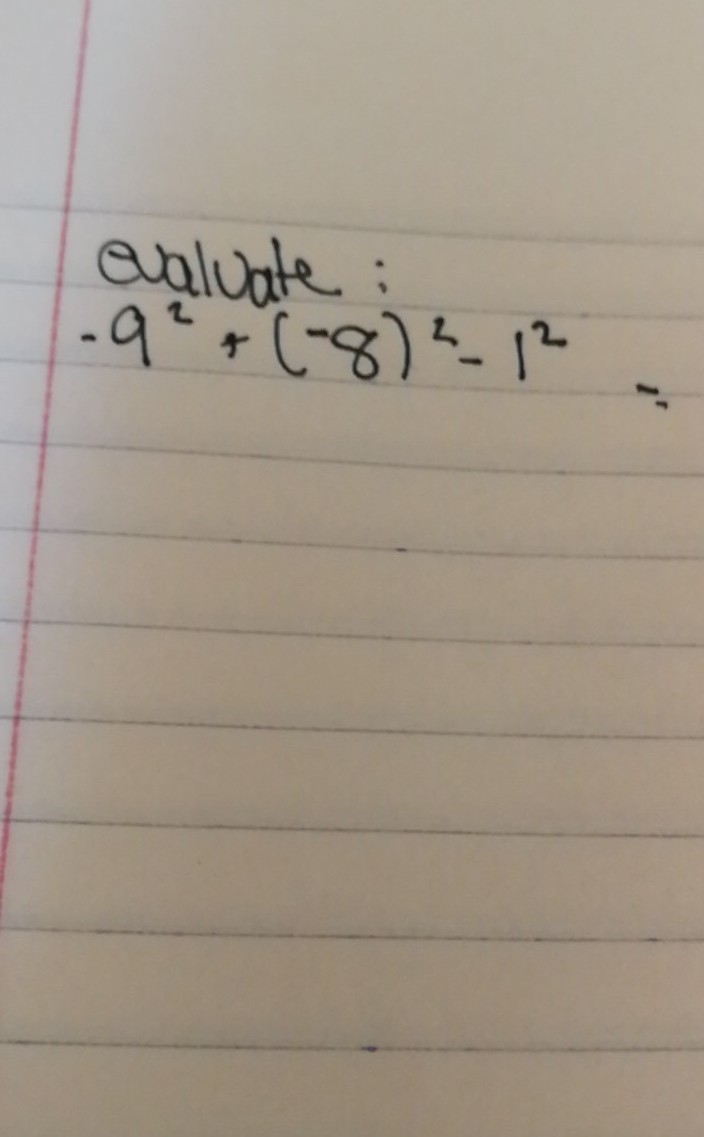 evaluate :
-9² + (-8)² - 1² =